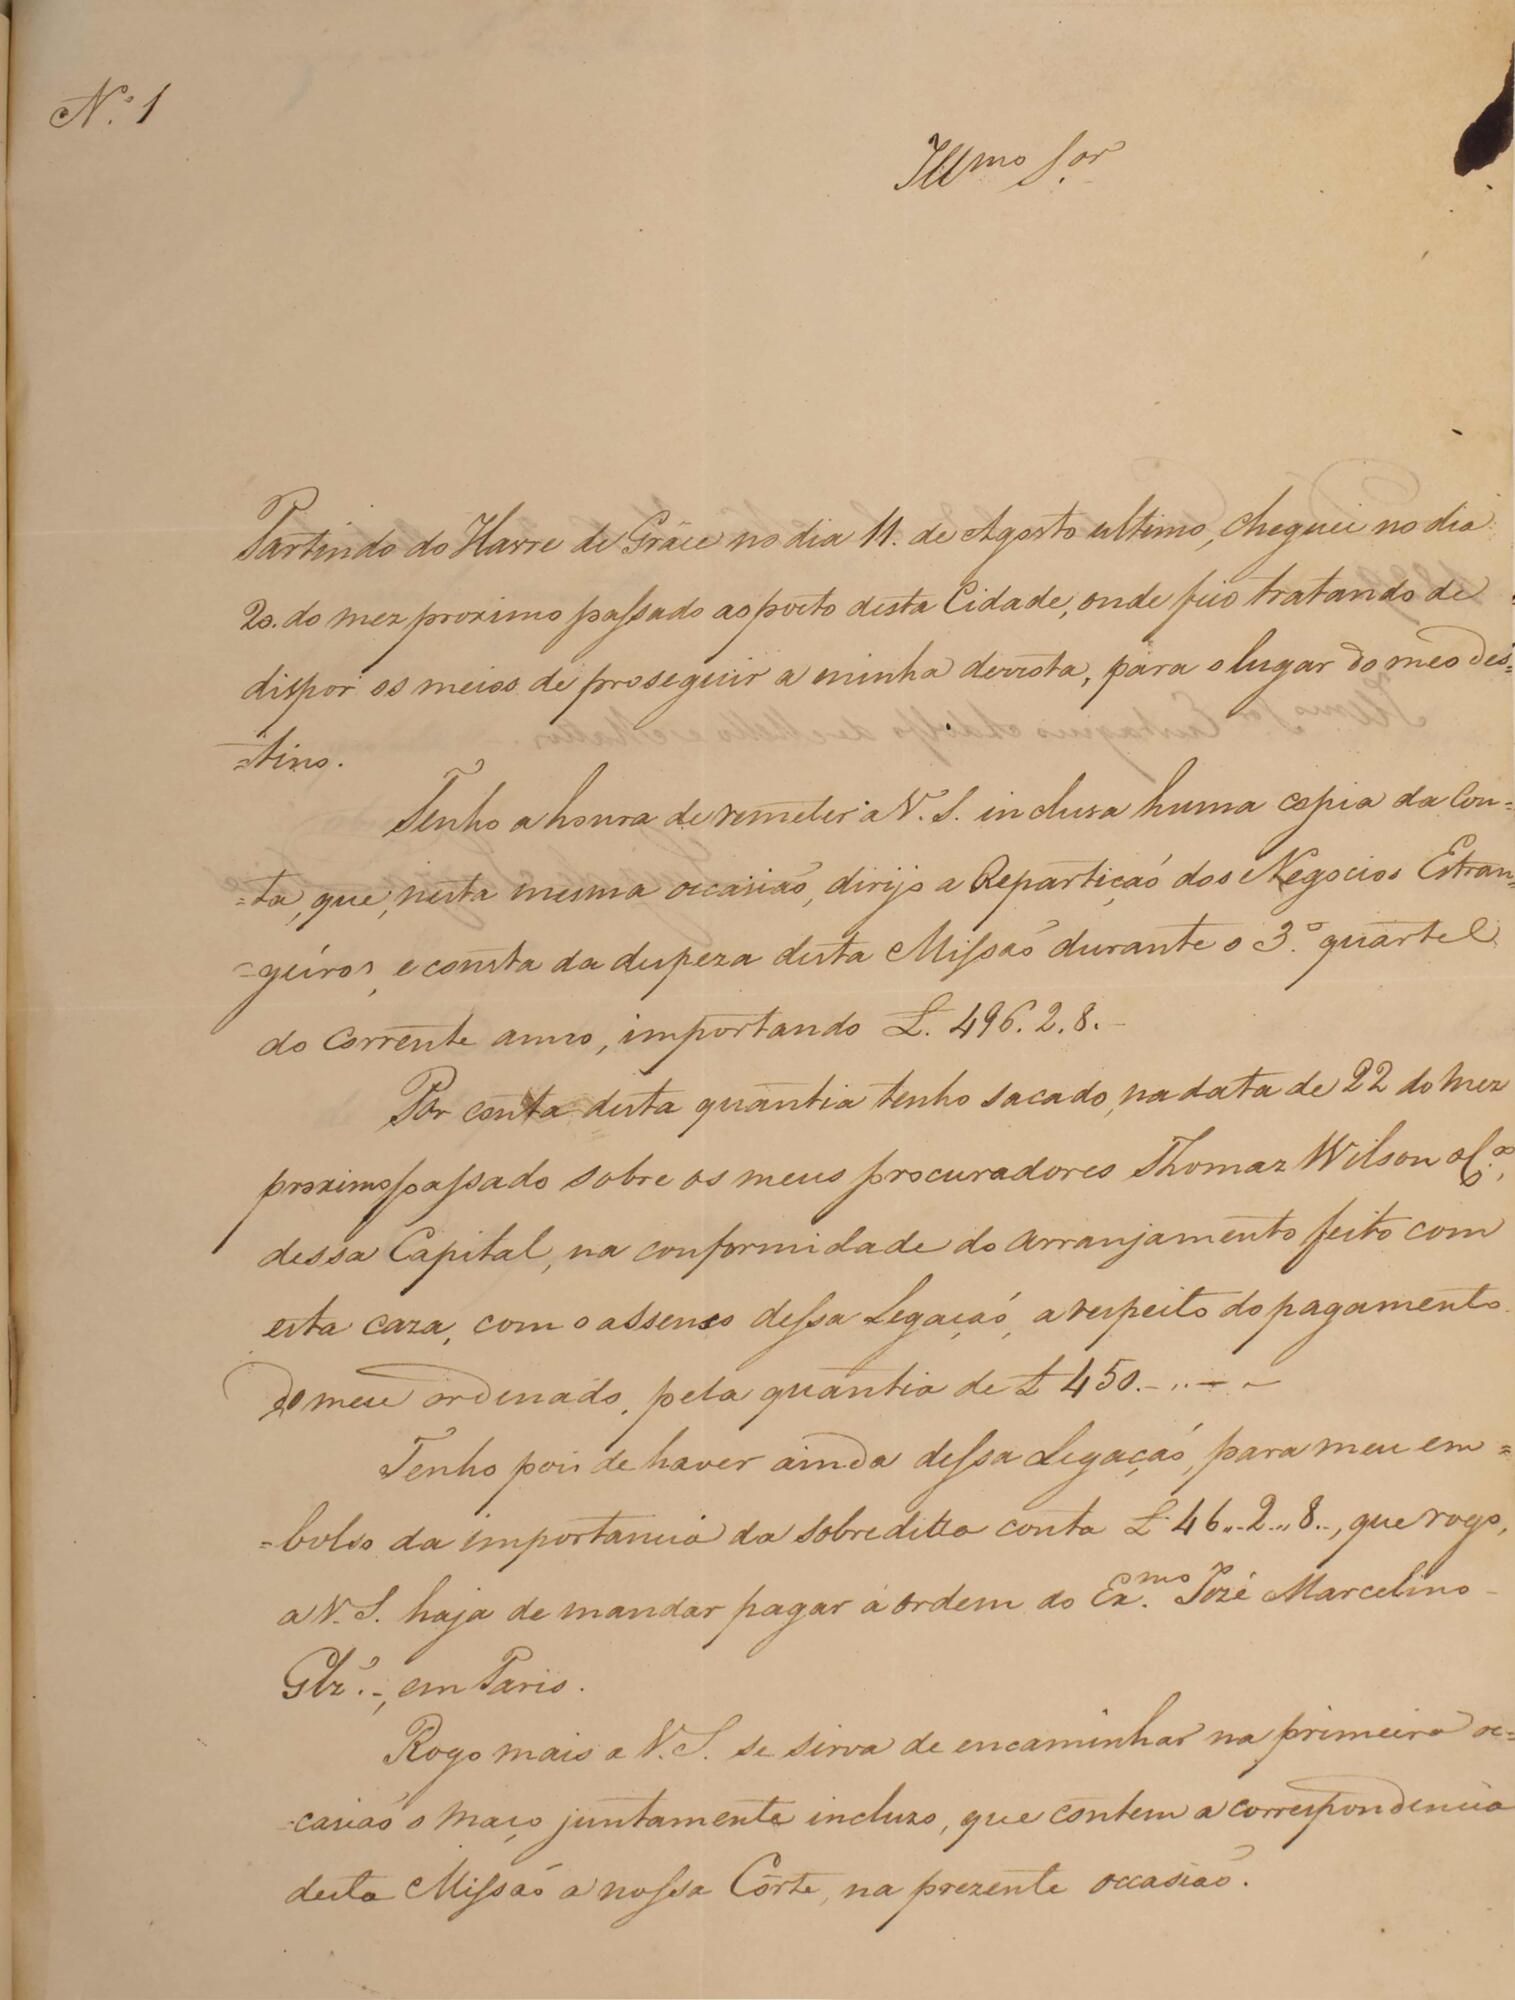 N.º 1
Illmo Sor
Partindo do Havre de Gráce no dia 11. de Agosto ultimo, cheguei no dia
20. do mez proximo passado ao porto desta Cidade, onde fico tratando de
dispor os meios de proseguir a minha derrota, para o lugar do meo des=
=tino.
Tenho a honra de remeter a V. S. inclusa huma copia da Con=
=ta, que, nesta mesma occasiaõ, dirijo a Repartiçaõ dos Negocios Estran=
=geiros, e consta da despeza desta Missaõ durante o 3.º quartel
do corrente anno, importando £. 496. 2. 8. -
Por conta desta quantia tenho sacado, na data de 22 do mez
proximo passado sobre os meus procuradores Thomaz Wilson & C.ª,
dessa Capital, na conformidade do arranjamento feito com
esta caza, com o assenso dessa Legaçaõ, a respeito do pagamento
do meu ordenado, pela quantia de £ 450. - .. - -
Tenho pois de haver ainda dessa Legaçaõ, para meu em=
=bolso da importancia da sobreditta conta £ 46..2..8.., que rogo,
a V. S. haja de mandar pagar á ordem do Ex.mo Jozé Marcelino
Glz.', em Paris.
Rogo mais a V. S. se sirva de encaminhar na primeira oc=
=casiaõ o maço juntamente incluzo, que contem a correspondencia
desta Missaõ a nossa Côrte, na prezente occasiaõ.